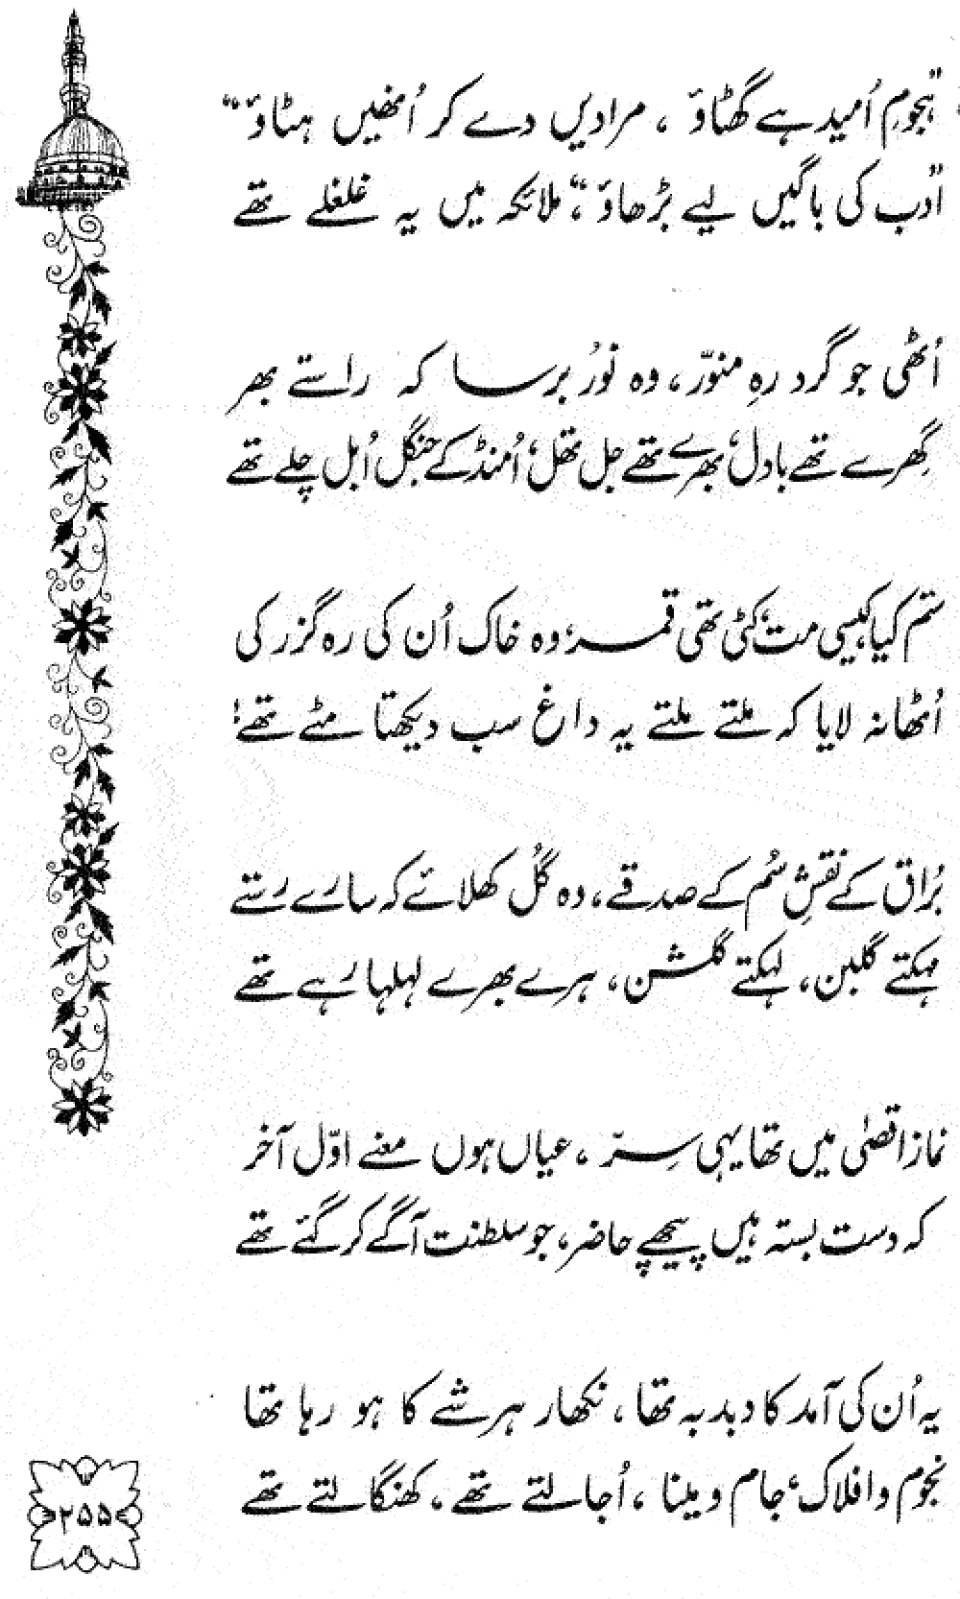 ”ہجومِ اُمید ہے گھٹاؤ ، مرادیں دے کر اُنھیں ہٹاؤ“
”ادب کی باگیں لیے بڑھاؤ“، ملائکہ میں یہ غلغلے تھے
اُٹھی جو گردِ رہِ منوّر، وہ نور برسا کہ راستے بھر
گھرے تھے بادل، بھرے تھے جل تھل، اُمنڈ کے جنگل اُبل چلے تھے
ستم کیا کیسی مت کٹی تھی قمر، وہ خاک اُن کی رہ گزر کی
اُٹھا نہ لایا کہ ملتے ملتے یہ داغ سب دیکھتا مٹے تھے!
بُراق کے نقشِ سُم کے صدقے، وہ گُل کھلائے کہ سارے رستے
مہکتے گلبن، لہکتے گلشن، ہرے بھرے لہلہا رہے تھے
نمازِ اقصٰی میں تھا یہی سِرّ ، عیاں ہوں معنے اوّل آخر
کہ دست بستہ ہیں پیچھے حاضر، جو سلطنت آگے کر گئے تھے
یہ اُن کی آمد کا دبدبہ تھا ، نکھار ہر شے کا ہو رہا تھا
نجوم و افلاک، جام و مینا ، اُجالتے تھے ، کھنگالتے تھے
۲۵۵